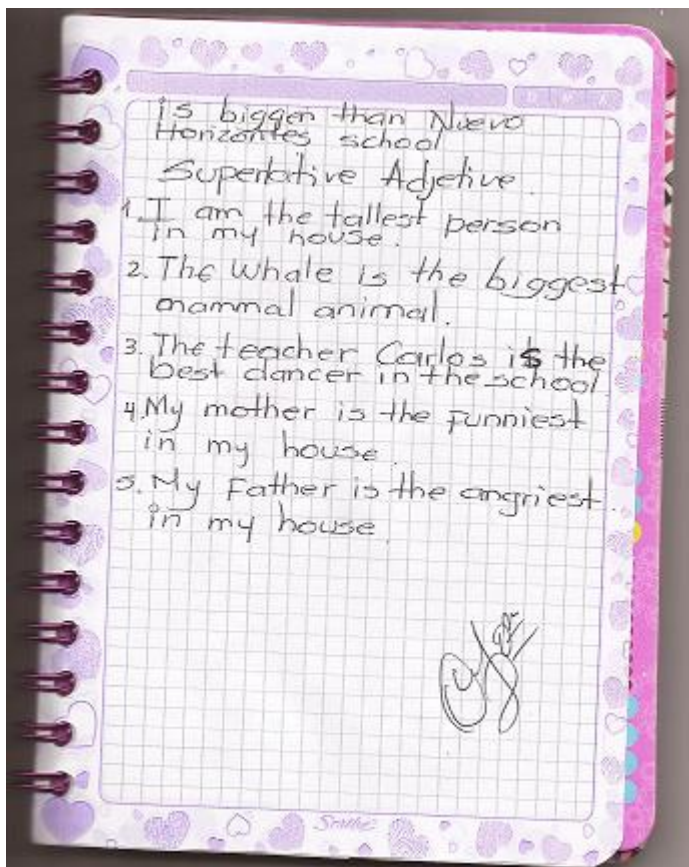 is bigger than Nuevo
Horizontes school
Superlative Adjetive.
1. I am the tallest person
in my house.
2. The whale is the biggest
mammal animal.
3. The teacher Carlos is the
best dancer in the school
4. My mother is the funniest
in my house.
5. My Father is the angriest
in my house.
Scribe